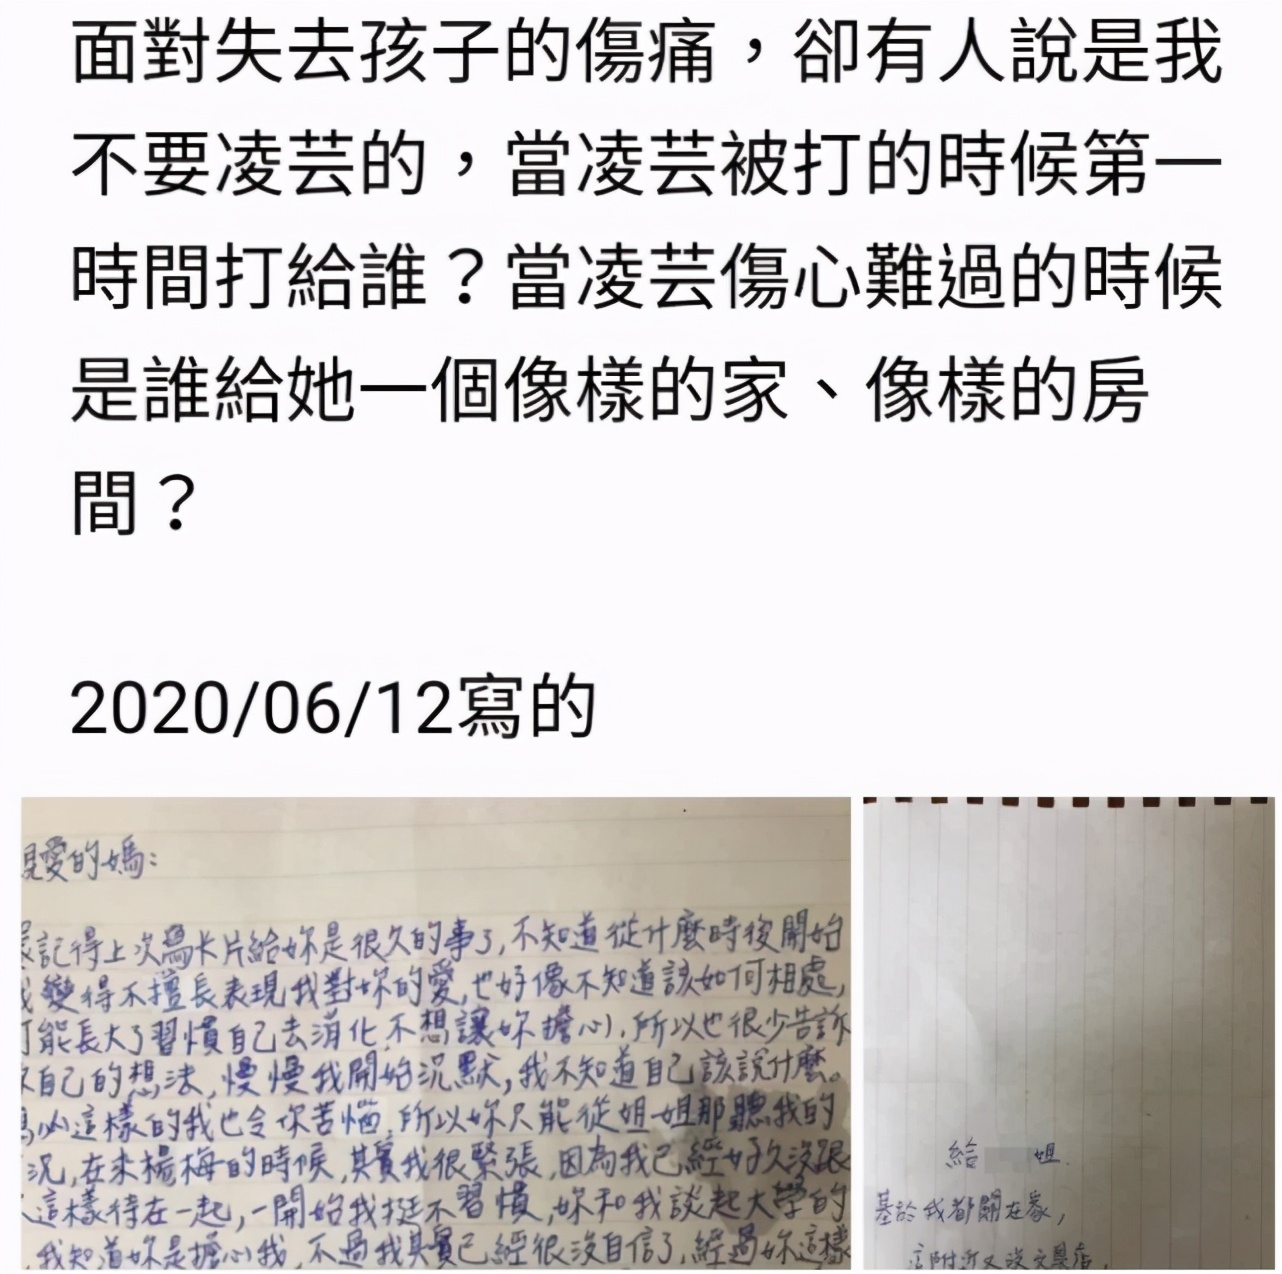 面對失去孩子的傷痛，卻有人說是我
不要凌芸的，當凌芸被打的時候第一
時間打給誰？當凌芸傷心難過的時候
是誰給她一個像樣的家、像樣的房
間？
2020/06/12寫的
愛的媽：
記得上次寫卡片給妳是很久的事了,不知道從什麼時後開始
變得不擅長表現我對妳的愛,也好像不知道該如何相處,
能長大了習慣自己去消化,不想讓妳擔心,所以也很少告訴
自己的想法,慢慢我開始沉默,我不知道自己該說什麼。
這樣的我也令你苦惱,所以妳只能從姐姐那聽我的
況,在來楊梅的時候,其實我很緊張,因為我已經好久沒跟
這樣待在一起,一開始我挺不習慣,妳和我談起大學的
我知道妳是擔心我,不過我其實已經很沒自信了,經過妳這樣
給 姐.
基於我都關在家,
這附近又沒文具店,